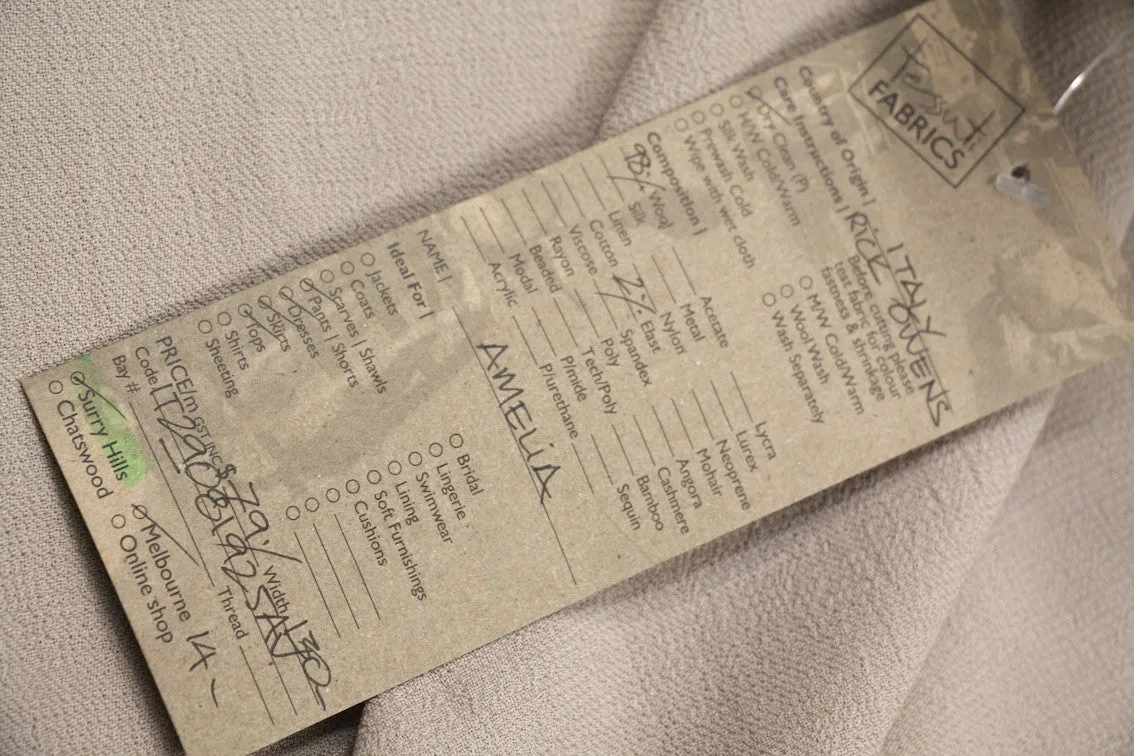 tessuti
FABRICS
Country of Origin | ITALY
Care Instructions | RICK OWENS
Dry Clean (P)
H/W Cold/Warm
Silk Wash
Prewash Cold
Wipe with wet cloth
M/W Cold/Warm
Wool Wash
Wash Separately
Before cutting please
test fabric for colour
fastness & shrinkage
Composition |
98% Wool
Silk
Linen
Cotton
Viscose
Rayon
Beaded
Modal
Acrylic
Acetate
Metal
Nylon
2% Elast
Spandex
Poly
Tech/Poly
P/mide
P/urethane
Lycra
Lurex
Neoprene
Mohair
Angora
Cashmere
Bamboo
Sequin
NAME | AMELIA
Ideal For |
Jackets
Coats
Scarves | Shawls
Pants | Shorts
Dresses
Skirts
Tops
Shirts
Sheeting
Bridal
Lingerie
Swimwear
Lining
Soft Furnishings
Cushions
PRICE/m GST INC $79./ Width 130
Code
Bay # Thread
Surry Hills
Chatswood
Melbourne 14-
Online shop